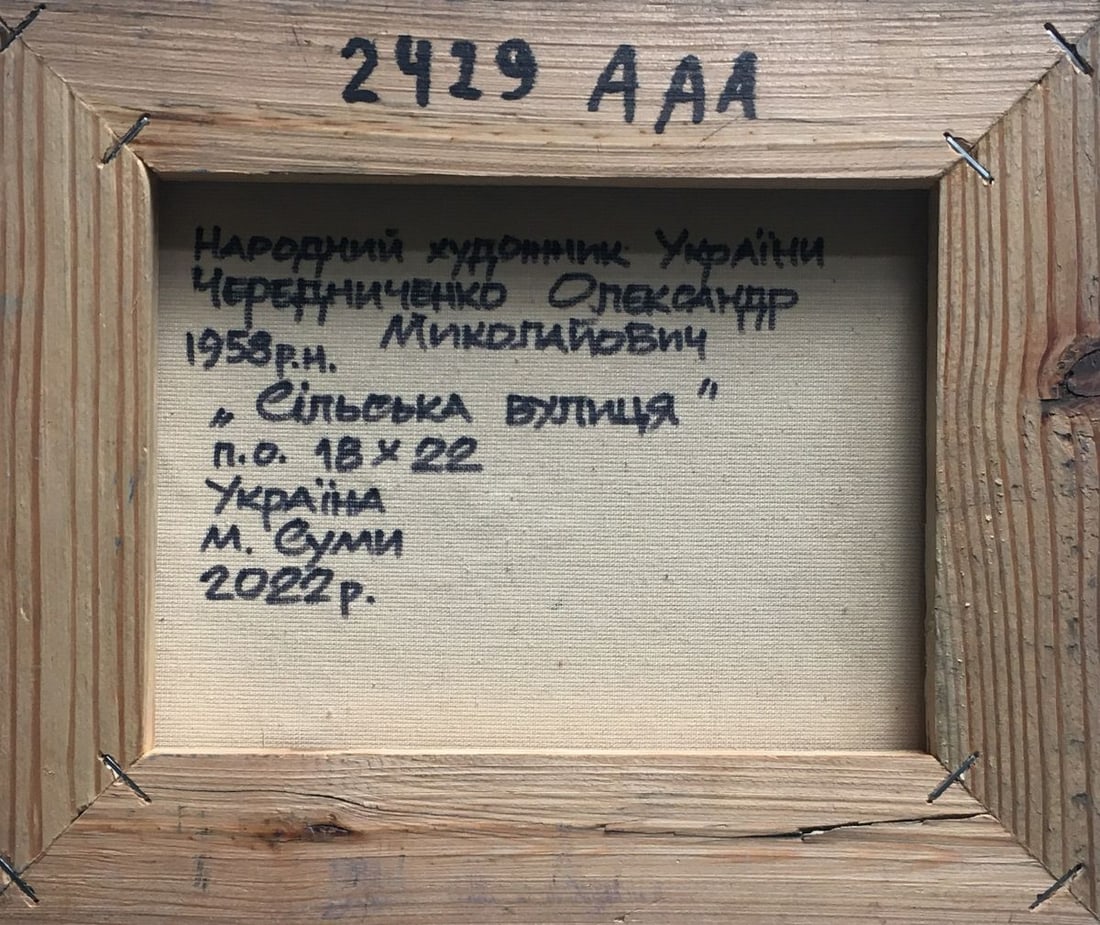 2429 ААА
Народний художник України
Чередниченко Олександр
Миколайович
1958р.н.
„ Сільська вулиця "
п.о. 18 х 22
Україна
м. Суми
2022р.